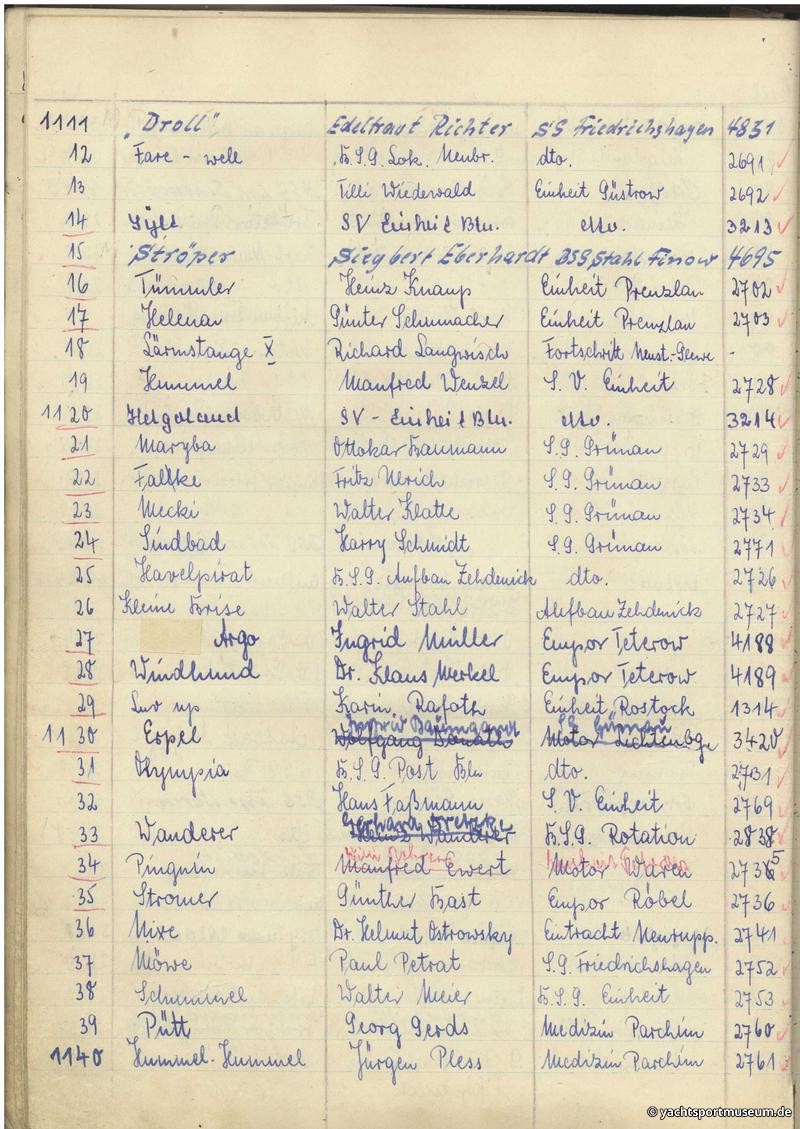 1111 "Droll" Edeltraut Richter SG Friedrichshagen 4831
12 Fare - well B.S.G. Lok. Neubr. dto. 2691
13 Tilli Wiedewald Einheit Güstrow 2692
14 Sylt SV Einheit Bln. dto. 3213
15 Ströper Siegbert Eberhardt BSG Stahl Finow 4695
16 Tümmler Heinz Knaup Einheit Prenzlau 2702
17 Helena Günter Schumacher Einheit Prenzlau 2703
18 Lärmstange X Richard Langwisch Fortschritt Neust.-Glewe -
19 Hummel Manfred Wenzel S. V. Einheit 2728
1120 Helgoland SV - Einheit Bln. dto. 3214
21 Maryba Ottokar Baumann S.G. Grünau 2729
22 Falke Fritz Ulrich S.G. Grünau 2733
23 Mecki Walter Klatte S.G. Grünau 2734
24 Sindbad Harry Schmidt S.G. Grünau 2771
25 Havelpirat B.S.G. Aufbau Zehdenick dto. 2726
26 Kleine Brise Walter Stahl Aufbau Zehdenick 2727
27 Argo Ingrid Müller Empor Teterow 4188
28 Windhund Dr. Klaus Merkel Empor Teterow 4189
29 Luv up Karin Rafoth Einheit Rostock 1314
Baumgardt SG Grünau
1130 Erpel Wolfgang Donath Motor Lichtenbg. 3420
31 Olympia B.S.G. Post Bln dto. 2731
32 Hans Faßmann S. V. Einheit 2769
Gerhard
33 Wanderer Heinz Wanderer B.S.G. Rotation 2838
34 Pinguin Manfred Ewert Motor Waren 2735
35 Stromer Günther Bast Empor Röbel 2736
36 Nixe Dr. Helmut Ostrowsky Eintracht Neurupp. 2741
37 Möwe Paul Petrat S.G. Friedrichshagen 2752
38 Schummel Walter Meier B.S.G. Einheit 2753
39 Pütt Georg Gerds Medizin Parchim 2760
1140 Hummel-Hummel Jürgen Pless Medizin Parchim 2761
© yachtsportmuseum.de